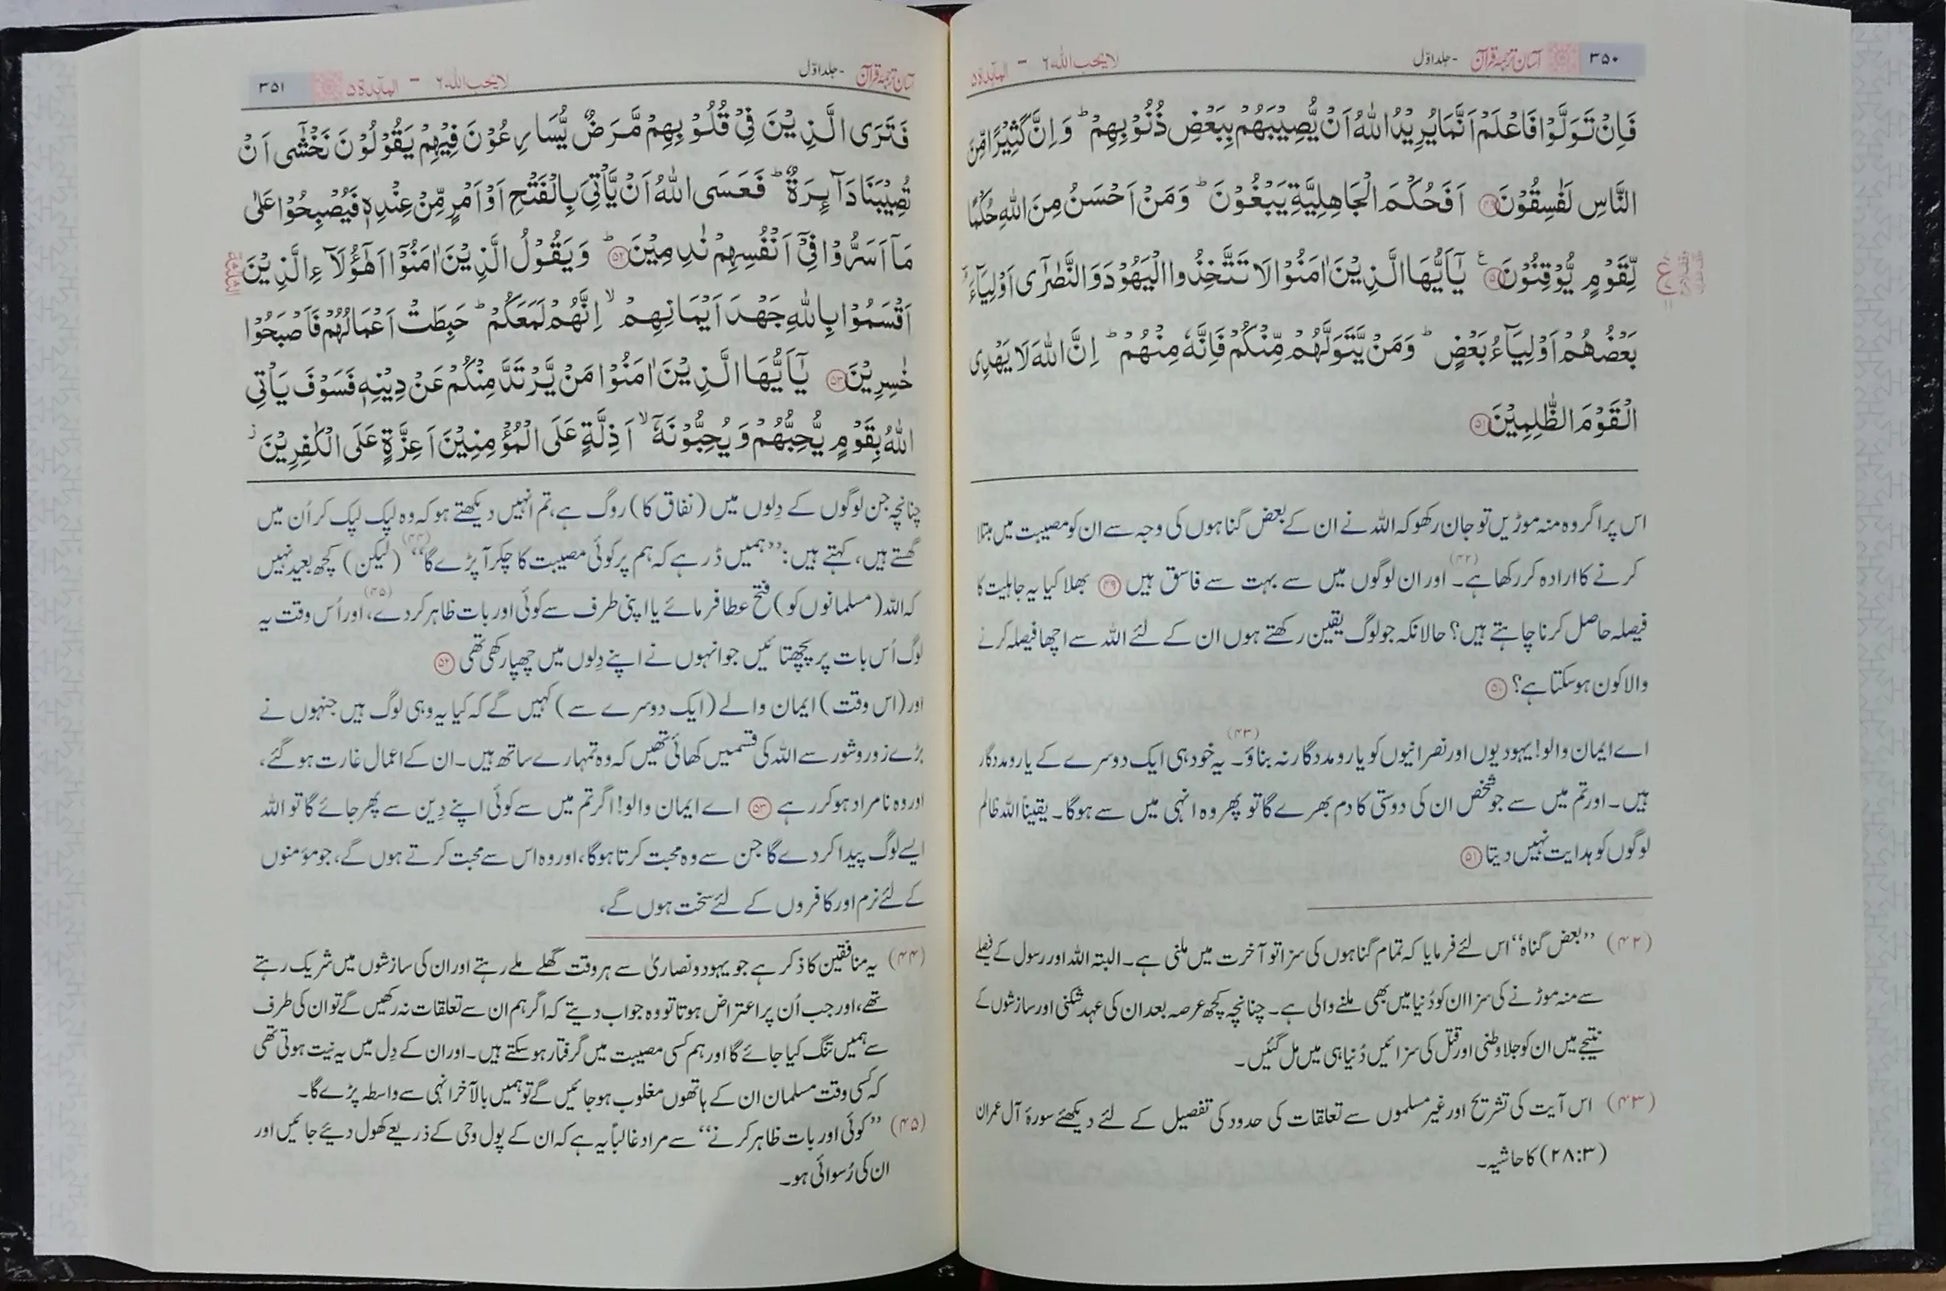 ۳۵۰ آسان ترجمۂ قرآن - جلد اوّل لا یحب اللہ ۶ - المآئدۃ ۵
فَاِنْ تَوَلَّوْا فَاعْلَمْ اَنَّمَا یُرِیْدُ اللّٰهُ اَنْ یُّصِیْبَهُمْ بِبَعْضِ ذُنُوْبِهِمْ ؕ وَ اِنَّ كَثِیْرًا مِّنَ
النَّاسِ لَفٰسِقُوْنَ ﴿۴۹﴾ اَفَحُكْمَ الْجَاهِلِیَّةِ یَبْغُوْنَ ؕ وَ مَنْ اَحْسَنُ مِنَ اللّٰهِ حُكْمًا
لِّقَوْمٍ یُّوْقِنُوْنَ ﴿۵۰﴾ یٰۤاَیُّهَا الَّذِیْنَ اٰمَنُوْا لَا تَتَّخِذُوا الْیَهُوْدَ وَ النَّصٰرٰۤی اَوْلِیَآءَ ۘ
بَعْضُهُمْ اَوْلِیَآءُ بَعْضٍ ؕ وَ مَنْ یَّتَوَلَّهُمْ مِّنْكُمْ فَاِنَّهٗ مِنْهُمْ ؕ اِنَّ اللّٰهَ لَا یَهْدِی
الْقَوْمَ الظّٰلِمِیْنَ ﴿۵۱﴾
اس پر اگر وہ منہ موڑیں تو جان رکھو کہ اللہ نے ان کے بعض گناہوں کی وجہ سے ان کو مصیبت میں مبتلا
کرنے کا ارادہ کر رکھا ہے۔(۴۲) اور ان لوگوں میں سے بہت سے فاسق ہیں ﴿۴۹﴾ بھلا کیا یہ جاہلیت کا
فیصلہ حاصل کرنا چاہتے ہیں؟ حالانکہ جو لوگ یقین رکھتے ہوں ان کے لئے اللہ سے اچھا فیصلہ کرنے
والا کون ہو سکتا ہے؟ ﴿۵۰﴾
اے ایمان والو! یہودیوں اور نصرانیوں کو یار و مددگار نہ بناؤ۔(۴۳) یہ خود ہی ایک دوسرے کے یار و مددگار
ہیں۔ اور تم میں سے جو شخص ان کی دوستی کا دم بھرے گا تو پھر وہ انہی میں سے ہوگا۔ یقیناً اللہ ظالم
لوگوں کو ہدایت نہیں دیتا ﴿۵۱﴾
(۴۲) ’’بعض گناہ‘‘ اس لئے فرمایا کہ تمام گناہوں کی سزا تو آخرت میں ملنی ہے۔ البتہ اللہ اور رسول کے فیصلے
سے منہ موڑنے کی سزا ان کو دُنیا میں بھی ملنے والی ہے۔ چنانچہ کچھ عرصہ بعد ان کی عہد شکنی اور سازشوں کے
نتیجے میں ان کو جلا وطنی اور قتل کی سزائیں دُنیا ہی میں مل گئیں۔
(۴۳) اس آیت کی تشریح اور غیر مسلموں سے تعلقات کی حدود کی تفصیل کے لئے دیکھئے سورۂ آل عمران
(۲۸:۳) کا حاشیہ۔
آسان ترجمۂ قرآن - جلد اوّل لا یحب اللہ ۶ - المآئدۃ ۵ ۳۵۱
فَتَرَی الَّذِیْنَ فِیْ قُلُوْبِهِمْ مَّرَضٌ یُّسَارِعُوْنَ فِیْهِمْ یَقُوْلُوْنَ نَخْشٰۤی اَنْ
تُصِیْبَنَا دَآىِٕرَةٌ ؕ فَعَسَی اللّٰهُ اَنْ یَّاْتِیَ بِالْفَتْحِ اَوْ اَمْرٍ مِّنْ عِنْدِهٖ فَیُصْبِحُوْا عَلٰی
مَاۤ اَسَرُّوْا فِیْۤ اَنْفُسِهِمْ نٰدِمِیْنَ ﴿۵۲﴾ؕ وَ یَقُوْلُ الَّذِیْنَ اٰمَنُوْۤا اَهٰۤؤُلَآءِ الَّذِیْنَ
اَقْسَمُوْا بِاللّٰهِ جَهْدَ اَیْمَانِهِمْ ۙ اِنَّهُمْ لَمَعَكُمْ ؕ حَبِطَتْ اَعْمَالُهُمْ فَاَصْبَحُوْا
خٰسِرِیْنَ ﴿۵۳﴾ یٰۤاَیُّهَا الَّذِیْنَ اٰمَنُوْا مَنْ یَّرْتَدَّ مِنْكُمْ عَنْ دِیْنِهٖ فَسَوْفَ یَاْتِی
اللّٰهُ بِقَوْمٍ یُّحِبُّهُمْ وَ یُحِبُّوْنَهٗۤ ۙ اَذِلَّةٍ عَلَی الْمُؤْمِنِیْنَ اَعِزَّةٍ عَلَی الْكٰفِرِیْنَ ؗ
چنانچہ جن لوگوں کے دِلوں میں (نفاق کا) روگ ہے، تم انہیں دیکھتے ہو کہ وہ لپک لپک کر اُن میں
گھستے ہیں، کہتے ہیں: ’’ہمیں ڈر ہے کہ ہم پر کوئی مصیبت کا چکر آ پڑے گا‘‘(۴۴) (لیکن) کچھ بعید نہیں
کہ اللہ (مسلمانوں کو) فتح عطا فرمائے یا اپنی طرف سے کوئی اور بات ظاہر کردے،(۴۵) اور اُس وقت یہ
لوگ اُس بات پر پچھتائیں جو انہوں نے اپنے دِلوں میں چھپا رکھی تھی ﴿۵۲﴾
اور (اس وقت) ایمان والے (ایک دوسرے سے) کہیں گے کہ کیا یہ وہی لوگ ہیں جنہوں نے
بڑے زور و شور سے اللہ کی قسمیں کھائی تھیں کہ وہ تمہارے ساتھ ہیں۔ ان کے اعمال غارت ہوگئے،
اور وہ نامراد ہو کر رہے ﴿۵۳﴾ اے ایمان والو! اگر تم میں سے کوئی اپنے دِین سے پھر جائے گا تو اللہ
ایسے لوگ پیدا کردے گا جن سے وہ محبت کرتا ہوگا، اور وہ اس سے محبت کرتے ہوں گے، جو مؤمنوں
کے لئے نرم اور کافروں کے لئے سخت ہوں گے،
(۴۴) یہ منافقین کا ذکر ہے جو یہود و نصاریٰ سے ہر وقت گھلے ملے رہتے اور ان کی سازشوں میں شریک رہتے
تھے، اور جب اُن پر اعتراض ہوتا تو وہ جواب دیتے کہ اگر ہم ان سے تعلقات نہ رکھیں گے تو ان کی طرف
سے ہمیں تنگ کیا جائے گا اور ہم کسی مصیبت میں گرفتار ہو سکتے ہیں۔ اور ان کے دِل میں یہ نیت ہوتی تھی
کہ کسی وقت مسلمان ان کے ہاتھوں مغلوب ہو جائیں گے تو ہمیں بالآخر انہی سے واسطہ پڑے گا۔
(۴۵) ’’کوئی اور بات ظاہر کرنے‘‘ سے مراد غالباً یہ ہے کہ ان کے پول وحی کے ذریعے کھول دیئے جائیں اور
ان کی رُسوائی ہو۔